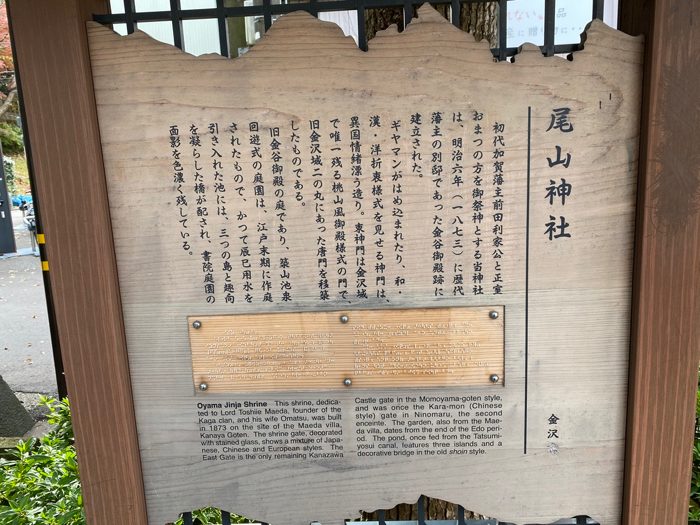 れない。品
に贈り物に
尾山神社
初代加賀藩主前田利家公と正室
おまつの方を御祭神とする当神社
は、明治六年(一八七三)に歴代
藩主の別邸であった金谷御殿跡に
建立された。
ギヤマンがはめ込まれたり、和・
漢・洋折衷様式を見せる神門は、
異国情緒漂う造り。東神門は金沢城
で唯一残る桃山風御殿様式の門で、
旧金沢城二の丸にあった唐門を移築
したものである。
旧金谷御殿の庭であり、築山池泉
回遊式の庭園は、江戸末期に作庭
されたもので、かつて辰巳用水を
引き入れた池には、三つの島と趣向
を凝らした橋が配され、書院庭園の
面影を色濃く残している。
Oyama Jinja Shrine This shrine, dedica-
ted to Lord Toshiie Maeda, founder of the
Kaga clan, and his wife Omatsu, was built
in 1873 on the site of the Maeda villa,
Kanaya Goten. The shrine gate, decorated
with stained glass, shows a mixture of Japa-
nese, Chinese and European styles. The
East Gate is the only remaining Kanazawa
Castle gate in the Momoyama-goten style,
and was once the Kara-mon (Chinese
style) gate in Ninomaru, the second
enceinte. The garden, also from the Mae-
da villa, dates from the end of the Edo peri-
od. The pond, once fed from the Tatsumi-
yosui canal, features three islands and a
decorative bridge in the old shoin style.
金沢